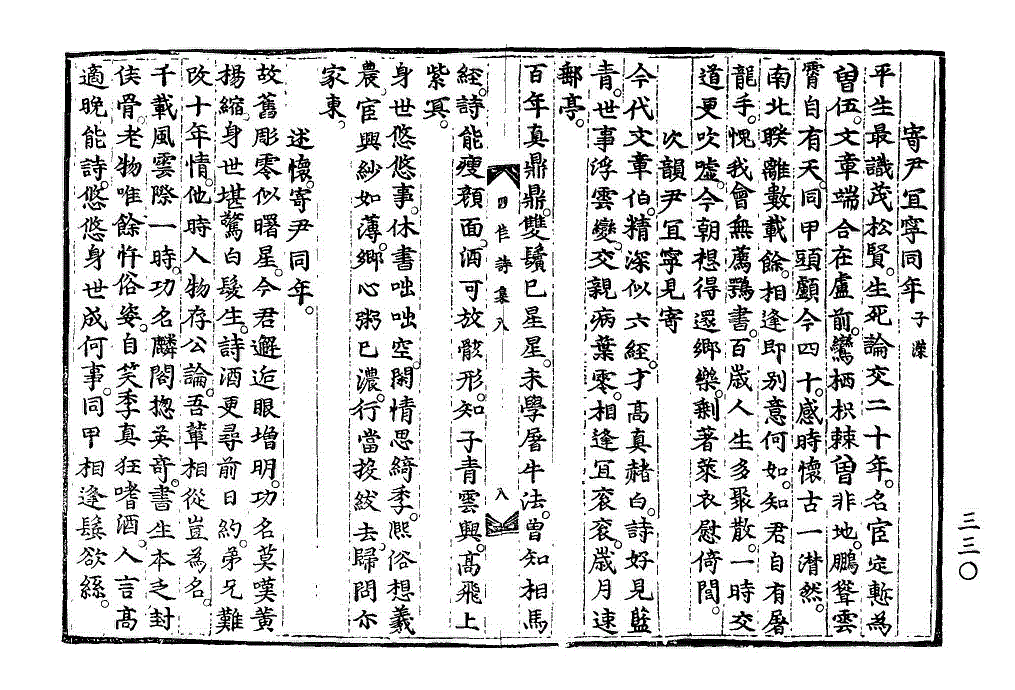 寄尹冝寧同年 子濚
平生最識茂松賢。生死論交二十年。名宦定慙為
曽伍。文章端合在盧前。鸞栖枳棘曽非地。鵬聳雲
霄自有天。同甲頭顱今四十。感時懷古一潸然。
南北睽離數載餘。相逢即別意何如。知君自有屠
龍手。愧我曾無薦鶚書。百歲人生多聚散。一時交
道更吹噓。今朝想得還鄉樂。剩著萊衣慰倚閭。
次韻尹冝寧見寄
今代文章伯。精深似六經。才高真赭白。詩好見藍
青。世事浮雲變。交親病葉零。相逢冝衮衮。歲月速
郵亭。
百年真鼎鼎。雙鬢已星星。未學屠牛法。曾知相馬
四佳詩集八 八
經。詩能瘦顔面。酒可放骸形。知子青雲興。高飛上
紫冥。
身世悠悠事。休書咄咄空。閑情思綺季。熈俗想羲
農。宦興紗如薄。鄉心粥已濃。行當投紱去。歸問亦
家東。
述懷。寄尹同年。
故舊彫零似曙星。今君邂逅眼增明。功名莫嘆黃
楊縮。身世堪驚白髮生。詩酒更尋前日約。弟兄難
改十年情。他時人物存公論。吾輩相從豈為名。
千載風雲際一時。功名麟閣摠英奇。書生本乏封
侯骨。老物唯餘忤俗姿。自笑季真狂嗜酒。人言高
適晚能詩。悠悠身世成何事。同甲相逢鬂欲絲。
三三〇